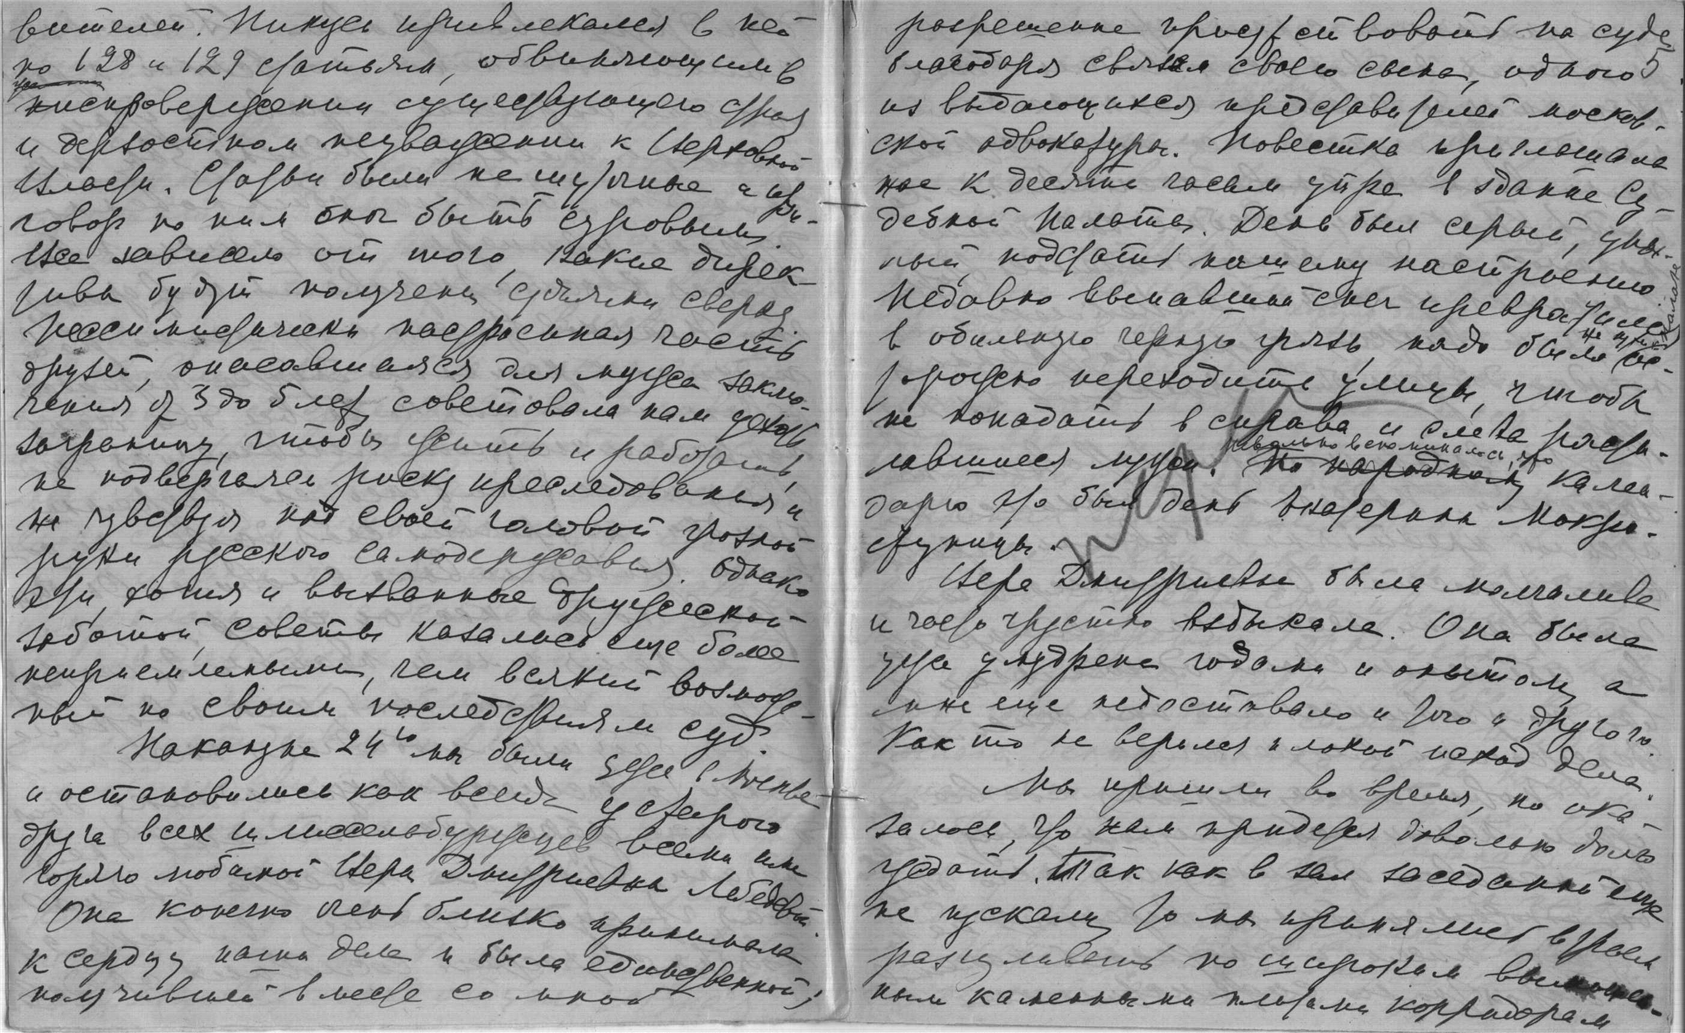 вителей. Минус привлекался в ней
по 128 и 129 статьям, обвиняющим в
ниспровержении существующего строя
и дерзостном неуважении к Верховной
Власти. Статьи были не шуточные и при-
говор по ним мог быть суровым.
Все зависело от того, какие дирек-
тивы будут получены судьями сверху.
Пессимистически настроенная часть
друзей, опасавшаяся для мужа заклю-
чения от 3 до 6 лет советовала нам уехать
заграницу, чтобы жить и работать,
не подвергаясь риску преследования и
не чувствуя над своей головой грозной
руки русского самодержавия. Однако
эти, хотя и вызванные дружеской
заботой, советы казались еще более
неприемлемыми, чем всякий возмож-
ный по своим последствиям суд.
Накануне 24го мы были уже в Москве
и остановились как всегда у старого
друга всех шлиссельбуржцев всеми ими
горячо любимой Веры Дмитриевны Лебедевой.
Она конечно очень близко принимала
к сердцу наши дела и была единственной,
получившей вместе со мной
5
разрешение присутствовать на суде
благодаря связям своего сына, одного
из выдающихся представителей москов-
ской адвокатуры. Повестка приглашала
нас к десяти часам утра в здание Су-
дебной Палаты. День был серый, уны-
лый, подстать нашему настроению
Недавно выпавший снег превратился
в обильную черную грязь, надо было ос-
торожно переходить улицы, чтобы
не попадать в справа и слева расти-
лавшиеся лужи. невольно вспоминалось, что
По народному кален-
дарю это был день Екатерины Мокро-
ступицы.
Вера Дмитриевна была молчалива
и часто грустно вздыхала. Она была
уже умудрена годами и опытом, а
мне еще недоставало и того и другого.
Как то не верилось в плохой исход дела.
Мы пришли во время, но ока-
залось, что нам придется довольно долго
ждать. Так как в зал заседаний еще
не пускали, то мы принялись втроем
разгуливать по широким вымощен-
ным каменными плитами корридорам